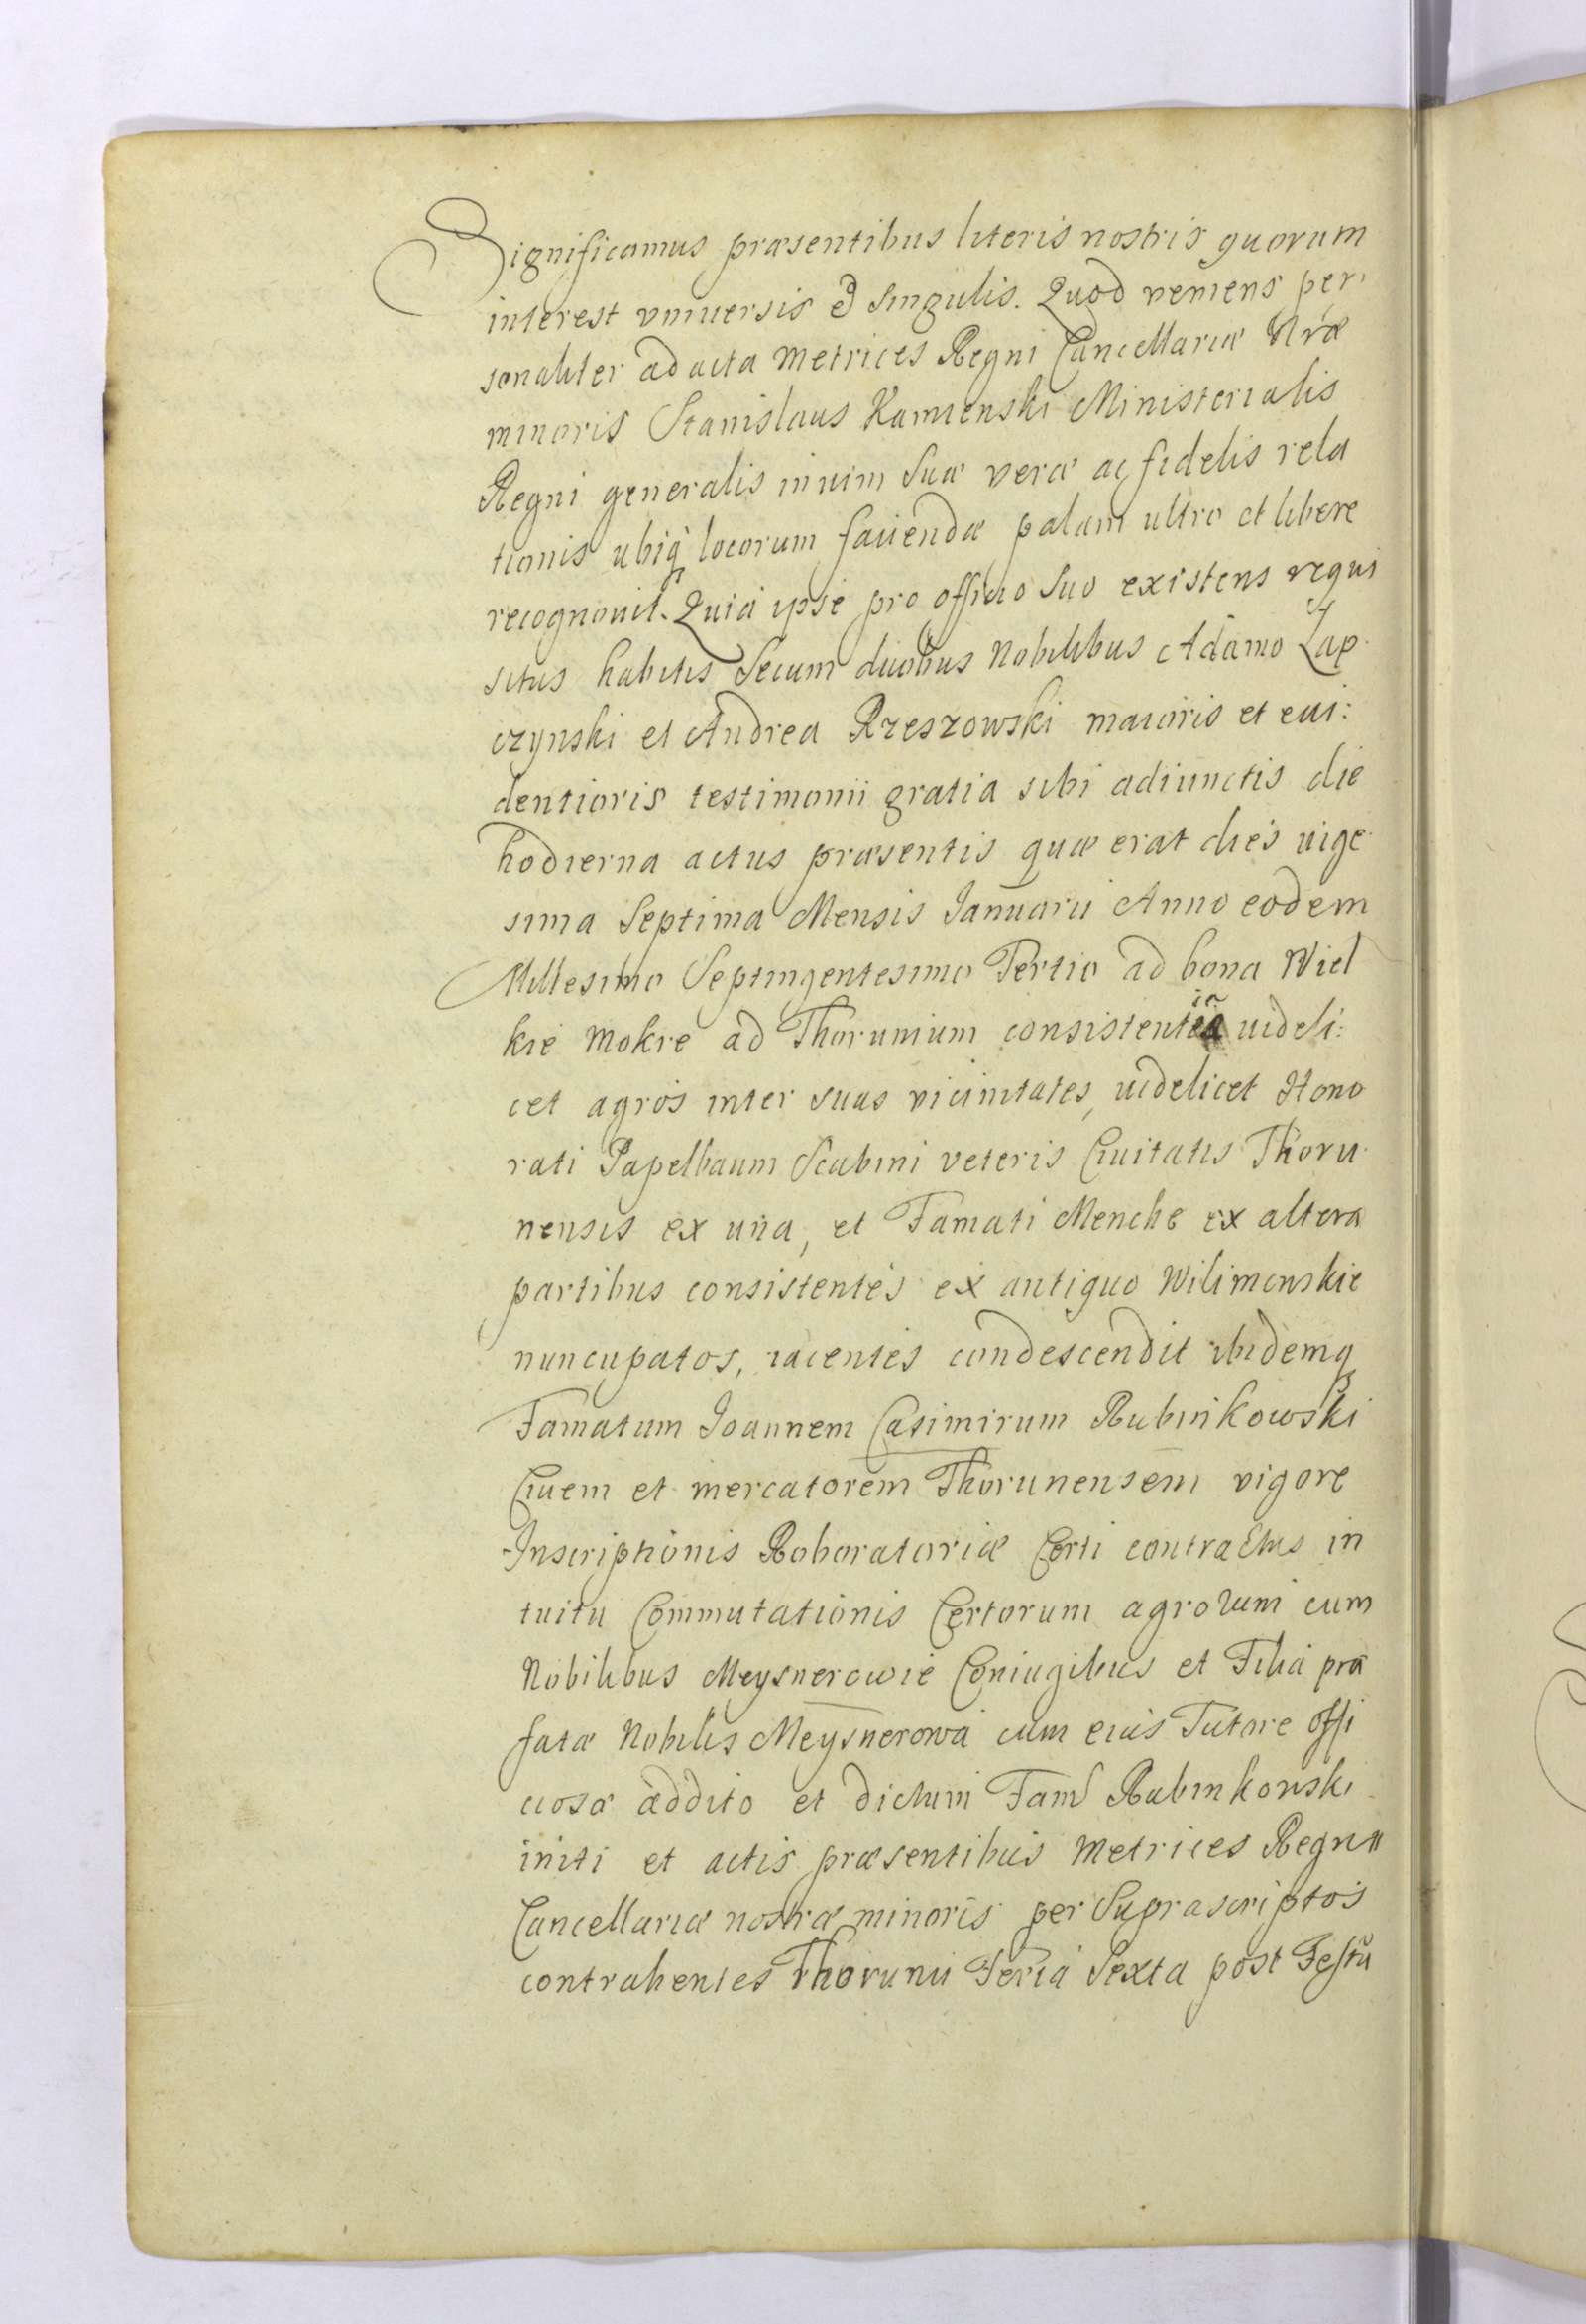 Significamus præsentibus literis nostris quorum
interest vniuersis & singulis. Quod veniens per
sonaliter ad acta Metrices Regni Cancellariæ Nræ
minoris Stanislaus Kamienski Ministerialis
Regni generalis in vim suæ veræ ac fidelis rela
tionis ubiq locorum faciendæ palam ultro et libere
recognouit. Quia ipse pro officio suo existens requi
situs habitis secum duobus Nobilibus Adamo Łap
czynski et Andrea Rzeszowski maioris et eui:
dentioris testimonii gratia sibi adiunctis die
hodierna actus præsentis quæ erat dies uige
sima Septima Mensis Januarii Anno eodem
Millesimo Septingentesimo Tertio ad bona Wiel
kie Mokre ad Thorunium consistentia uideli:
cet agros inter suas vicinitates, uidelicet Hono
rati Papelbaum Scabini veteris Ciuitatis Thoru
nensis ex una, et Famati Menche ex altera
partibus consistentes ex antiquo Wilimonskie
nuncupatos, iacentes condescendit ibidemq
Famatum Joannem Casimirum Rubinkowski
Ciuem et mercatorem Thorunensem vigore
Inscriptionis Roboratoriæ Certi contractus in
tuitu Commutationis Certorum agrorum cum
Nobilibus Meysnerowie Coniugibus et Filia præ
fatæ Nobilis Meysnerowa cum eius Tutore offi
ciose addito et dictum Fam Rubinkowski
initi et actis præsentibus Metrices Regni
Cancellariæ nostræ minoris per Suprascriptos
contrahentes Thorunii Feria Sexta post Festũ